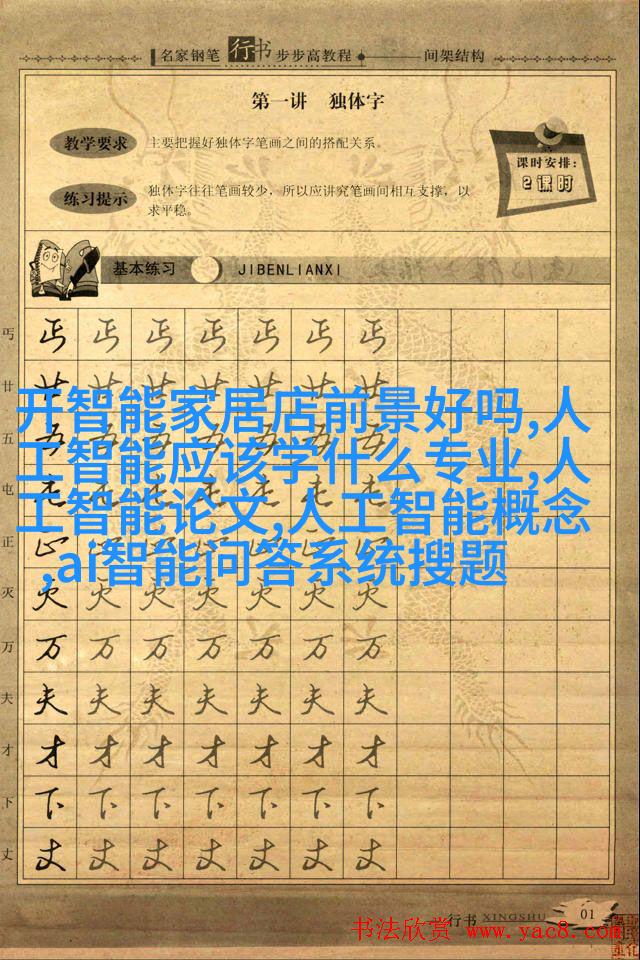 名家钢笔行书步步高教程 间架结构
第一讲 独体字
教学要求
主要把握好独体字笔画之间的搭配关系。
课时安排:
2课时
练习提示
独体字往往笔画较少,所以应讲究笔画间相互支撑,以
求平稳。
基本练习 JIBENLIANXI
丐 丐 丐 丐 丐 丐 丐 丐
廿 廿 廿 廿 廿 廿 廿 廿
开智能家居店前景好吗,人
五 五 五 五 五 五 五 五
工智能应该学什么专业,人
屯 屯 屯 屯 屯 屯 屯 屯
工智能论文,人工智能概念
正 正 正 正 正 正 正 正
,ai智能问答系统搜题
灭 灭 灭 灭 灭 灭 灭 灭
万 万 万 万 万 万 万 万
夫 夫 夫 夫 夫 夫 夫 夫
才 才 才 才 才 才 才 才
下 下 下 下 下 下 下 下
丈 丈 丈 丈 丈 丈 丈 丈
行书 XINGSHU 01
书法欣赏 www.yac8.com